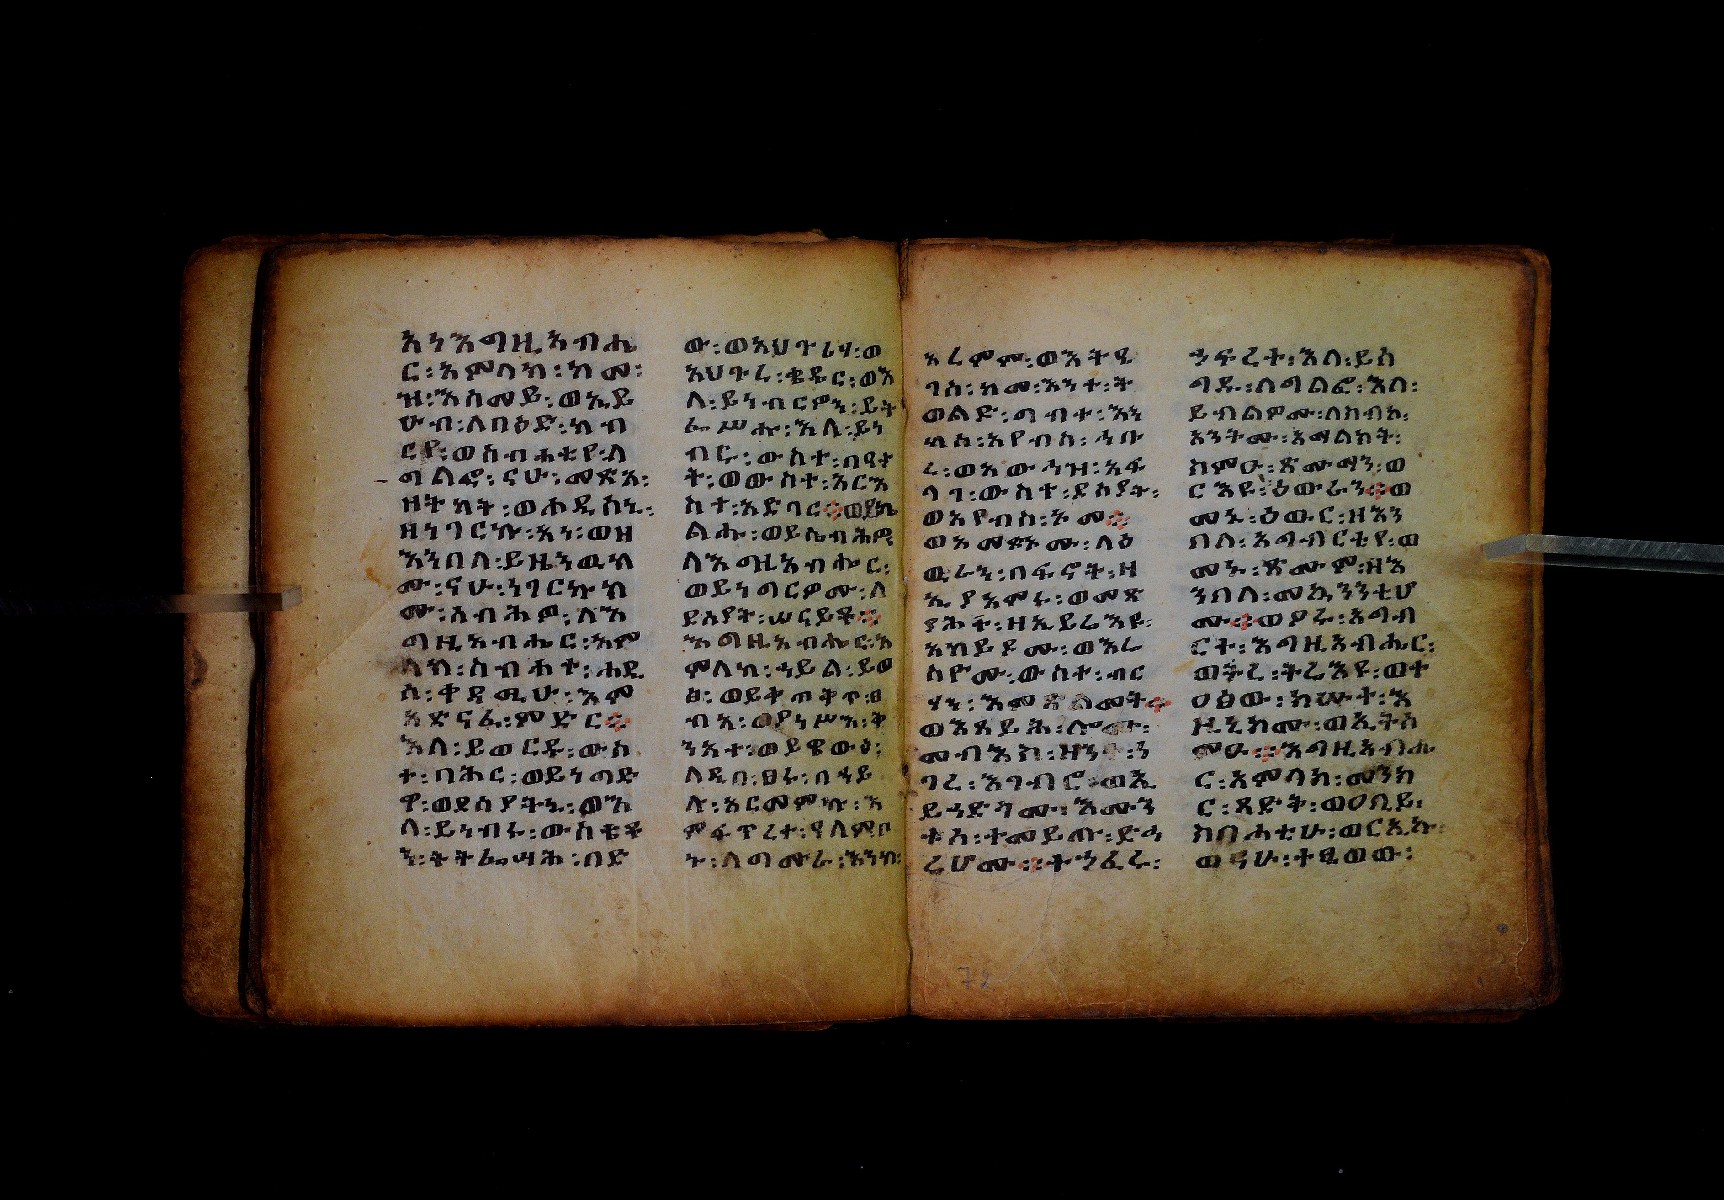 አነእግዚአብሔ
ር፡አምላክ፡ክመ፡
ዝ፡እስመይ፡ወኢይ
ሁብ፡ለበዕድ፡ክብ
ርየ፡ወስብሐቲየ፡ለ
ግልፎ፡ናሁ፡መጽአ፡
ዘትክት፡ወሐዲስኒ፡
ዘነገርኩ፡አነ፡ወዘ
እንበለ፡ይዜንዉክ
ሙ፡ናሁ፡ነገርኩክ
ሙ፡ሰብሕዎ፡ለእ
ግዚአብሔር፡አም
ላክ፡ስብሐተ፡ሐዲ
ሰ፡ቀዳሚሁ፡እም
አጽናፈ፡ምድር።
እለ፡ይወርዱ፡ውስ
ተ፡ባሕር፡ወይነግድ
ዋ፡ወደሰያትኒ፡ወእ
ለ፡ይነብሩ፡ውስቴቶ
ን፡ትትፌሣሕ፡በድ
ው፡ወአህጉሪሃ፡ወ
አህጉረ፡ቄዳር፡ወእ
ለ፡ይነብርዎን፡ይት
ፌሥሑ፡እለ፡ይነ
ብሩ፡ውስተ፡በዓተ
ት፡ወውስተ፡አርእ
ስተ፡አድባር።ወየኬ
ልሑ፡ወይሴብሕዎ
ለእግዚአብሔር፡
ወይነግርዎሙ፡ለ
ደሰያት፡ሠናይቶ።
እግዚአብሔር፡አ
ምላክ፡ኃይል፡ይወ
ፅ፡ወይቀጠቅጥ፡ፀ
ብአ፡ወያነሥእ፡ቅ
ንአተ፡ወይዌውዕ፡
ለዲበ፡ፀሩ፡በኃይ
ሉ፡አርመምኩ፡እ
ምፍጥረተ፡ዓለምየ
ኑ፡ለግሙራ፡እንከ፡
አረምም፡ወእትዔ
ገስ፡ከመ፡እንተ፡ት
ወልድ፡ግብተ፡እነ
ሣእ፡አየብስ፡ኅቡ
ረ፡ወእውኅዝ፡አፍ
ላገ፡ውስተ፡ደሰያት፡
ወአየብስ፡ኦመ።
ወእመጽኦሙ፡ለዕ
ዉራን፡በፍኖት፡ዘ
ኢያአምሩ፡ወመጽ
ያሕት፡ዘኢይሬእዩ፡
አከይዶሙ፡ወእሬ
ስዮሙ፡ውስተ፡ብር
ሃን፡እምጽልመት።
ወእጸይሕ፡ሎሙ፡
መብእከ፡ዘንተ፡ነ
ገረ፡እገብሮ፡ወኢ
ይኃድጎሙ፡እሙን
ተሰ፡ተመይጡ፡ድኅ
ሬሆሙ።ትኀፈሩ፡
ኀፍረተ፡እለ፡ይስ
ግዱ፡ለግልፎ፡እለ፡
ይብልዎሙ፡ለስብኮ፡
አንትሙ፡አማልክት፡
ስምዑ፡ጽሙማን፡ወ
ርእዩ፡ዕውራን።ወ
መኑ፡ዕውር፡ዘእን
በለ፡አግብርቲየ፡ወ
መኑ፡ጽሙም፡ዘእ
ንበለ፡መኳንንቲሆ
ሙ።ወዖሩ፡አግብ
ርተ፡እግዚአብሔር፡
ወትረ፡ትሬእዩ፡ወተ
ዐፅው፡ከሠተ፡እ
ዘኒክሙ፡ወኢትሰ
ምዑ።እግዚአብሔ
ር፡አምላክ፡መንክ
ር፡ጻድቅ፡ወዐቢይ፡
ስብሐቲሁ፡ወርኢኩ
ወናሁ፡ተፄወወ፡